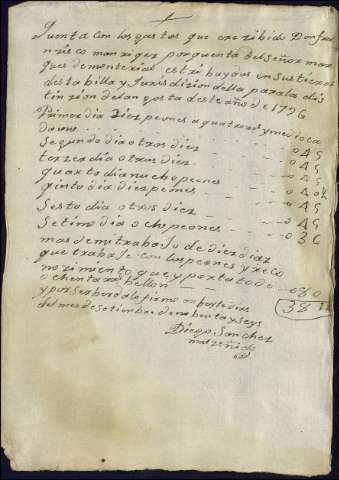 Junta con los gastos que e rezibido Don fran
zisco manrigez por quenta del señor mar
ques de monterial estribuydos en sus tieras
desta billa y Jurisdizion della para la dis
tinzion de langosta deste año de 1796
Primer dia diez peones a quatro rs y medio ca
da uno 045
Segundo dia otros diez 045
terzer dia otros diez 045
quarto dia nuebe peones 040
quinto dia diez peones 045
Sesto dia otros diez 045
Setimo dia ocho peones 036
mas de mi trabajo de diez diaz
que trabaje con los peones y reco
nozimiento que ynporta todo 080
ochenta rs bellon 381
y por ser berdad lo firmo en
del mes de Setiembre de nobenta y seys
Diego Sanchez